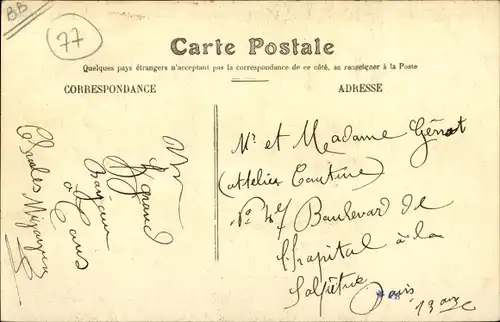 BB
77
Carte Postale
Quelques pays étrangers n'acceptant pas la correspondance de ce côté, se renseigner à la Poste
CORRESPONDANCE
ADRESSE
Un
Grand
à
Tous
Charles
Mr et Madame Génot
(attelier Couture)
No 47 Boulevard de
l'hopital à la
Salpétrie
Paris
13 arr